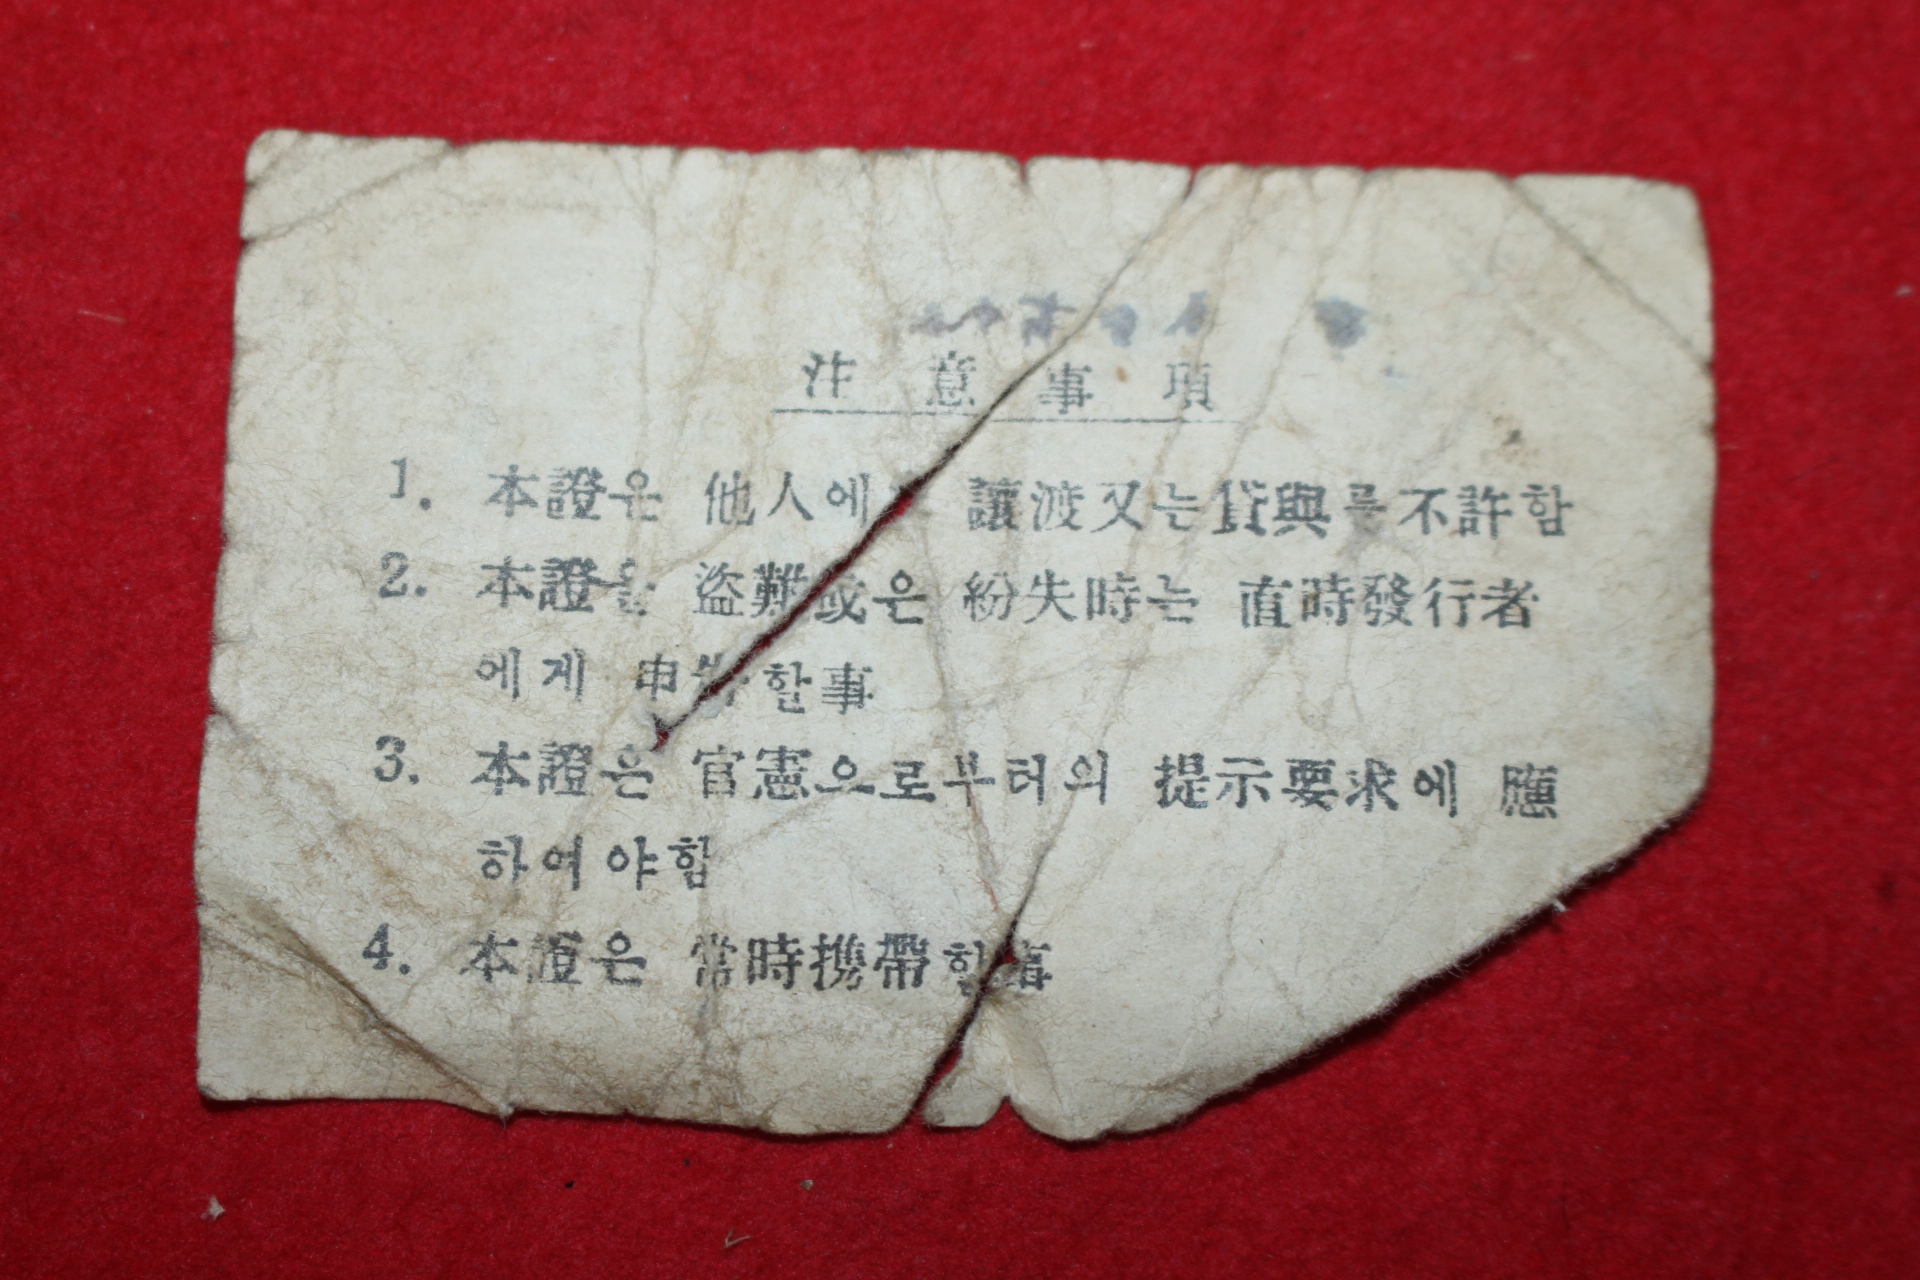 注意事項
1. 本證은 他人에 讓渡又는貸與를不許함
2. 本證을 盜難或은 紛失時는 直時發行者
에게 申告할事
3. 本證은 官憲으로부터의 提示要求에 應
하여야함
4. 本證은 常時携帶할事